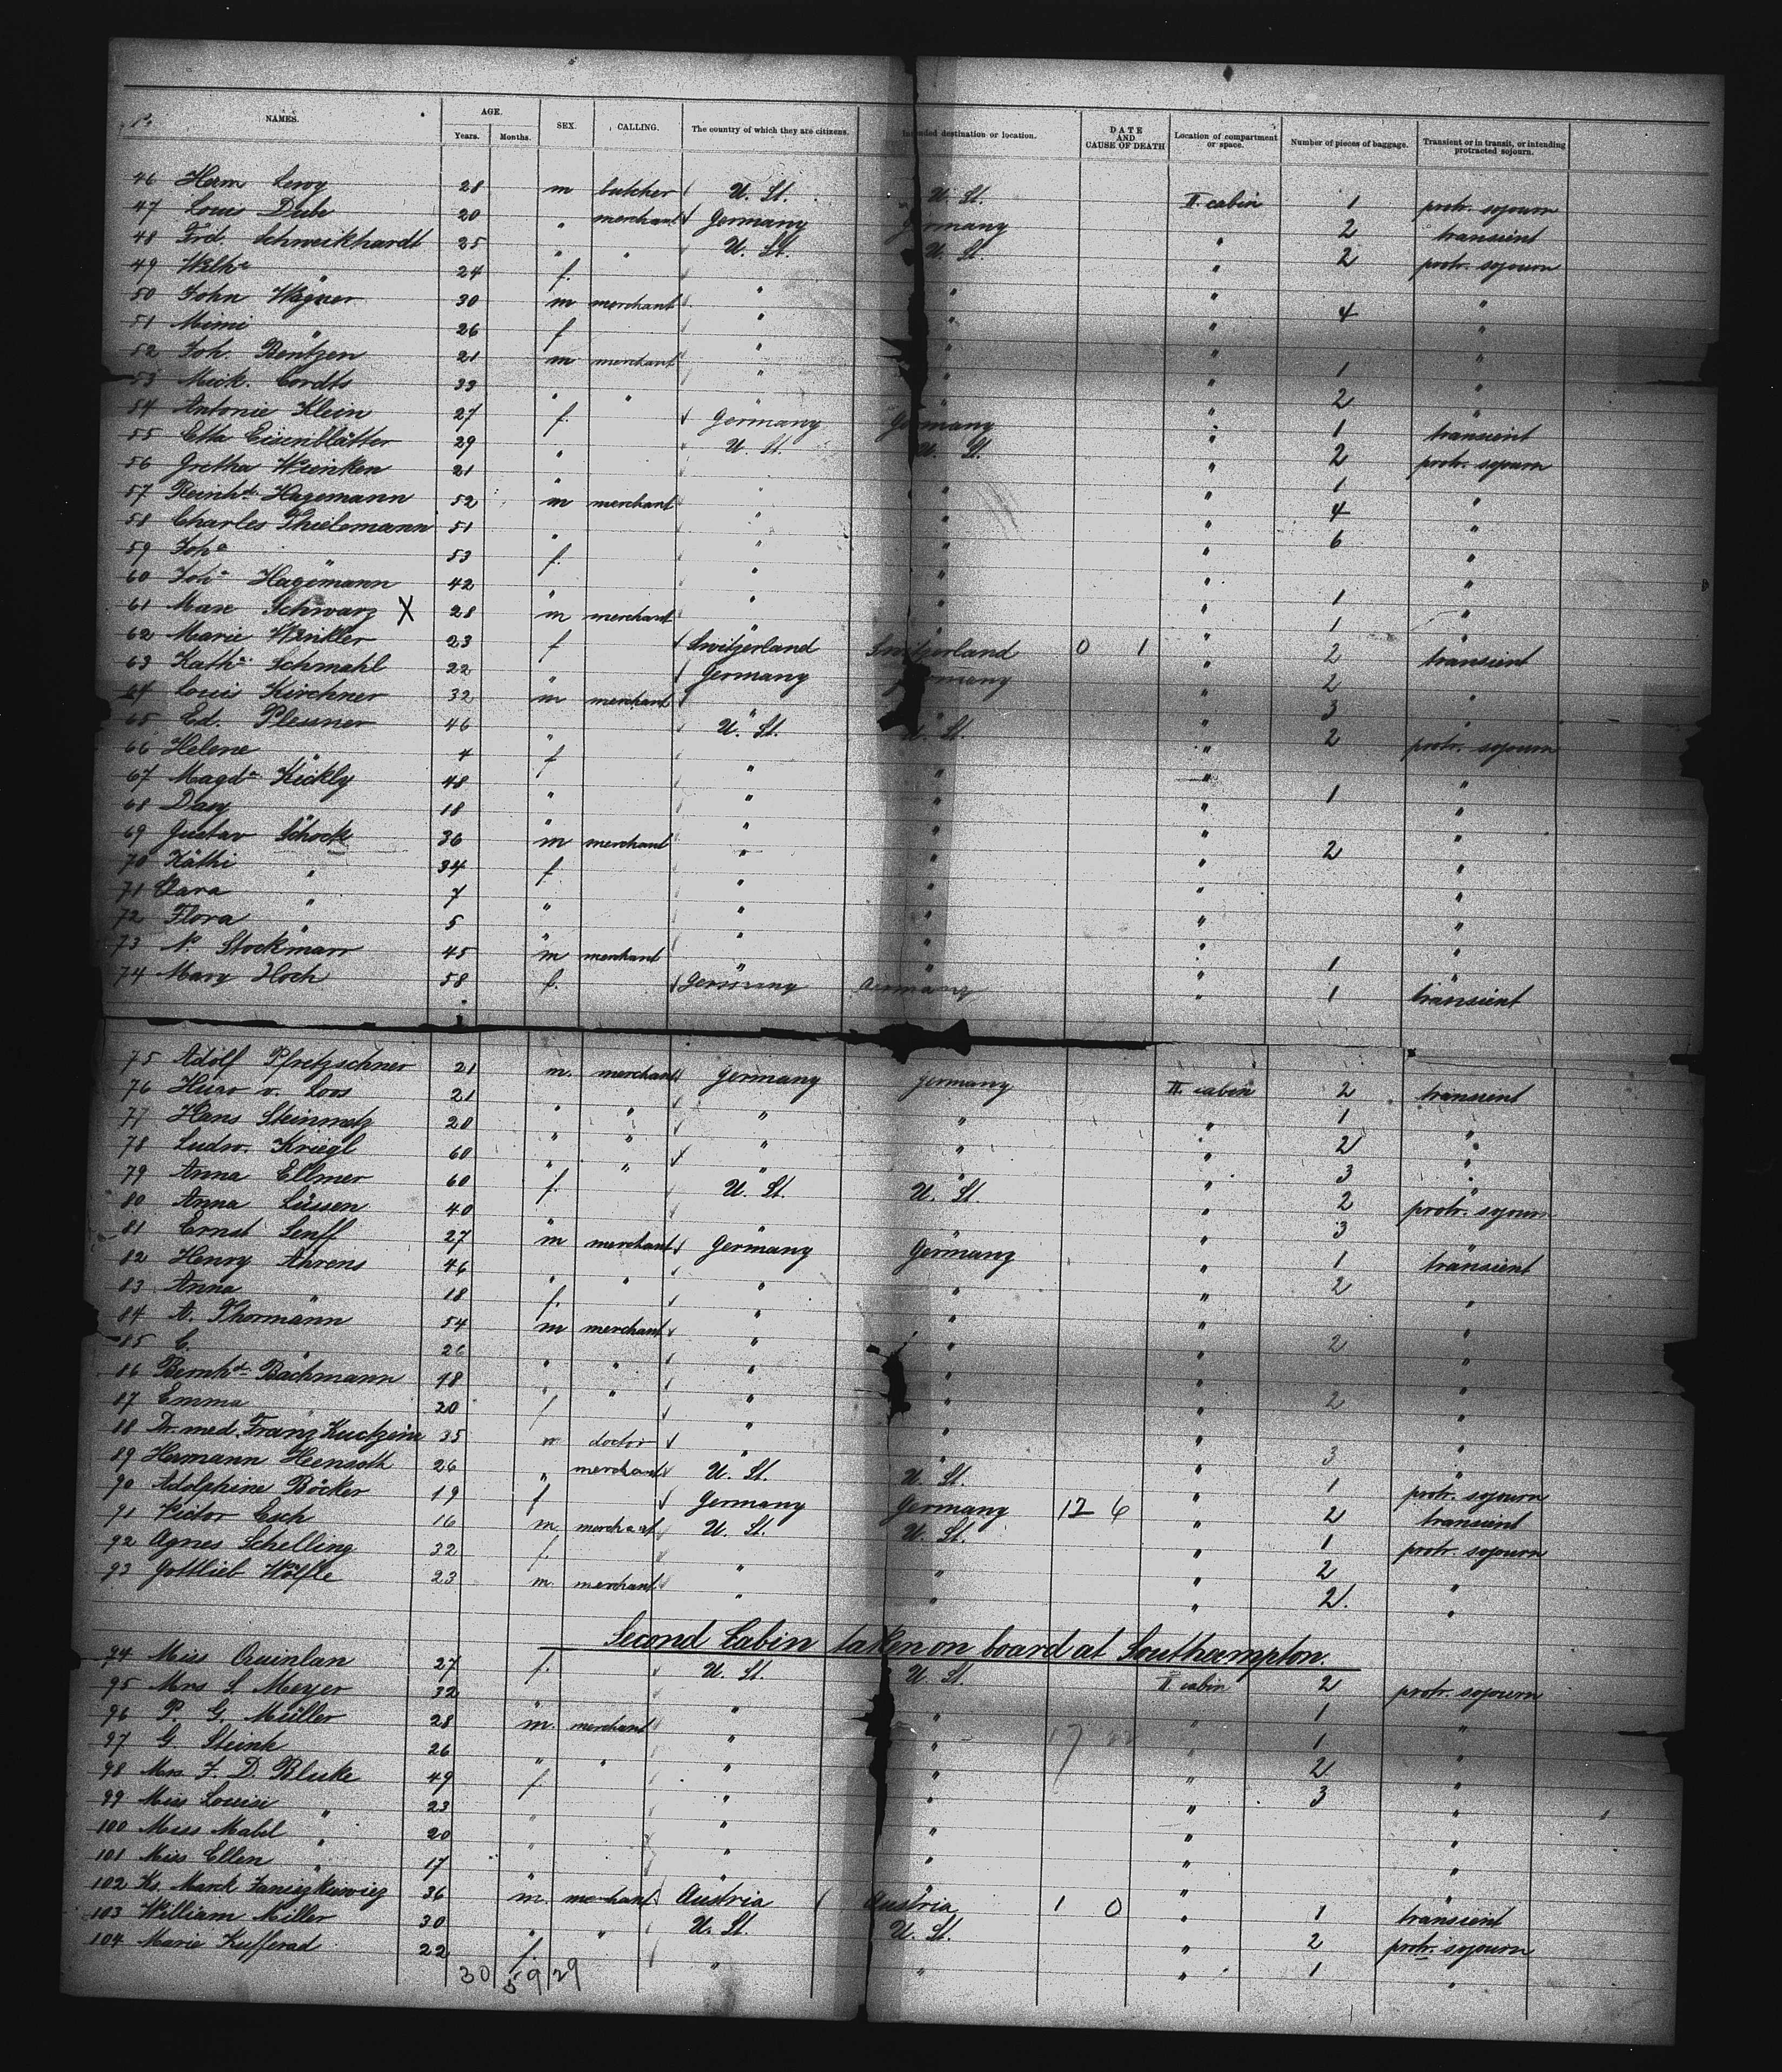 No. NAMES. AGE. Years. Months. SEX. CALLING. The country of which they are citizens. Intended destination or location. DATE AND CAUSE OF DEATH Location of compartment or space. Number of pieces of baggage. Transient or in transit, or intending protracted sojourn.
46 Herm Levy 28 m butcher U. St. U. St. II. cabin 1 protr. sojourn
47 Louis Dube 20 " merchant Germany Germany 2 transient
48 Frd. Schweikhardt 25 " " U. St. U. St. " 2 protr. sojourn
49 Wilhe " 24 f. " " " "
50 John Wagner 30 m merchant " " " 4 "
51 Mimi " 26 f " " " "
52 Joh. Bentzen 21 m merchant " " " 1 "
53 Mick. Cordts 33 " " " " " 2 "
54 Antonie Klein 27 f. Germany Germany " 1 transient
55 Etta Eisenblätter 29 " U. St. U. St. " 2 protr. sojourn
56 Gretha Wienken 21 " " " " 1 "
57 Reinhd. Hagemann 52 m merchant " " " 4 "
58 Charles Thielemann 51 " " " " 6 "
59 Joha " 53 f. " " " "
60 Joha Hagemann 42 " " " " 1 "
61 Max Schwarz X 28 m merchant " " " 1 "
62 Marie Winkler 23 f Switzerland Switzerland 0 1 " 2 transient
63 Kathe Schmahl 22 " Germany Germany " 2 "
64 Louis Kirchner 32 m merchant " " " 3 "
65 Ed. Plessner 46 " U. St. U. St. " 2 protr. sojourn
66 Helene " 4 f " " " "
67 Magda Kickly 48 " " " " 1 "
68 Dasy " 18 " " " " "
69 Gustav Schock 36 m merchant " " " 2 "
70 Käthi " 34 f. " " " "
71 Clara " 7 " " " " "
72 Flora " 5 " " " " "
73 N. Stockmarr 45 m merchant " " " 1 "
74 Mary Hoch 58 f. Germany Germany " 1 transient
75 Adolf Pfretzschner 21 m. merchant Germany Germany II. cabin 2 transient
76 v. Loos 21 " " " " " 1 "
77 Hans Steinmetz 20 " " " " " 2 "
78 Ludw. Kriegl 60 " " " " " 3 "
79 Anna Ellmer 60 f. U. St. U. St. " 2 protr. sojourn
80 Anna Lüssen 40 " " " " 3 "
81 Ernst Senff 27 m merchant Germany Germany " 1 transient
82 Henry Ahrens 46 " " " " " 2 "
83 Anna " 18 f. " " " "
84 A. Thormann 54 m merchant " " " 2 "
85 C. " 26 " " " " " "
86 Bernhd. Bachmann 48 " " " " " 2 "
87 Emma " 20 f " " " "
88 Dr. med. Franz 35 m doctor " " " 3 "
89 Hermann Heensoth 26 " merchant U. St. U. St. " 1 protr. sojourn
90 Adolphine Böcker 19 f Germany Germany 12 6 " 2 transient
91 Victor Esch 16 m merchant U. St. U. St. " 1 protr. sojourn
92 Agnes Schelling 32 f. " " " 2 "
93 Gottlieb Wölfle 23 m. merchant " " " 2. "
Second Cabin taken on board at Southampton.
94 Miss Quinlan 27 f. U. St. U. St. II. cabin 2 protr. sojourn
95 Mrs S Meyer 32 " " " " 1 "
96 P. G. Müller 28 m. merchant " " " 1 "
97 G. Steink 26 " " " " " 2 "
98 Mrs. F. D. Bluke 49 f " " " 3 "
99 Miss Louise " 23 " " " " "
100 Miss Mabel " 20 " " " " "
101 Miss Ellen " 17 " " " " "
102 Marck 36 m. merchant Austria Austria 1 0 " 1 transient
103 William Miller 30 " " U. St. U. St. " 2 protr. sojourn
104 Marie Kufferad 22 f. " " " 1 "
30 59 29